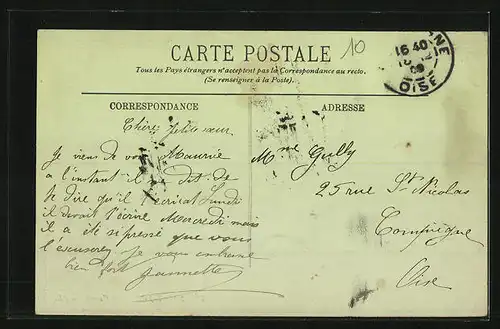 CARTE POSTALE
Tous les Pays étrangers n'acceptent pas la Correspondance au recto.
(Se renseigner à la Poste).
10
NE
16 40
09
OISE
CORRESPONDANCE
ADRESSE
Chère petite sœur
Je viens de voir Maurice
a l'instant il dit de
te dire qu'il écrirait Lundi
il devait t'écrire Mercredi mais
il a été si pressé que vous
l'excuserez Je vous embrasse
bien fort Jeannette
Mme Gully
25 rue St Nicolas
Compiègne
Oise